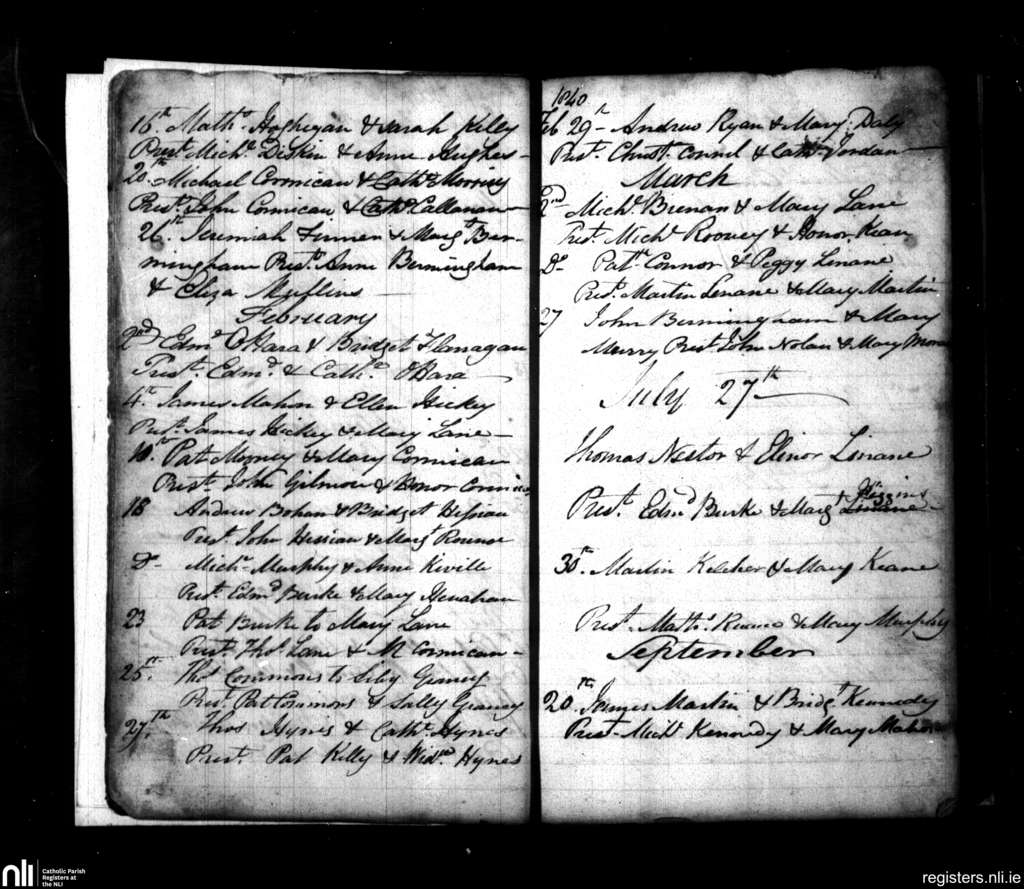 16th Matho. Hoghegan & Sarah Kelly
Prest. Michl. Diskin & Anne Hughes
20th. Michael Cormican & Cathe Morriss
Prest. John Cormican & Cathe Callanan
26th. Jeremiah Finnen & Margt Ber-
mingham Prest. Anne Bermingham
& Eliza Mullins
February
2nd Edmd OHara & Bridget Flanagan
Prest. Edmd. & Cathe. OHara
4th. James Mahon & Ellen Hickey
Prest. James Hickey & Mary Lane
10th. Pat Mooney & Mary Cormican
Prest. John Gilmore & Honor Cormican
18 Andrew Bohan & Bridget Hessian
Prest. John Hessian & Margt
Do Michl. Murphy & Anne Kiville
Prest. Edmd Burke & Mary Henahan
23 Pat Burke to Mary Lane
Prest. Thos. Lane & M Cormican
25th. Thos Commons to Sibby Graney
Prest. Pat Commons & Sally Graney
27th. Thos Hynes & Cathe. Hynes
Prest. Pat Killy & Widw. Hynes
1840
Feb 29th Andrew Ryan & Mary Daly
Prest. Christ. Connel & Cathe Jordan
March
2nd Michl. Brenan & Mary Lane
Prest. Michl Rooney & Honor Kean
Do Patk Connor & Peggy Linane
Prest. Martin Linane & Mary Martin
27 John Bermingham & Mary
Murry Prest. John Nolan & Mary
July 27th
Thomas Nestor & Elinor Linane
Higgins
Prest. Edmd Burke & Margt Linane
30th. Martin Keleher & Mary Keane
Prest. Matho. & Mary Murphy
September
20th. James Martin & Bridgt Kennedy
Prest. Michl Kennedy & Mary Mahon
nli
Catholic Parish
Registers at
the NLI
registers.nli.ie